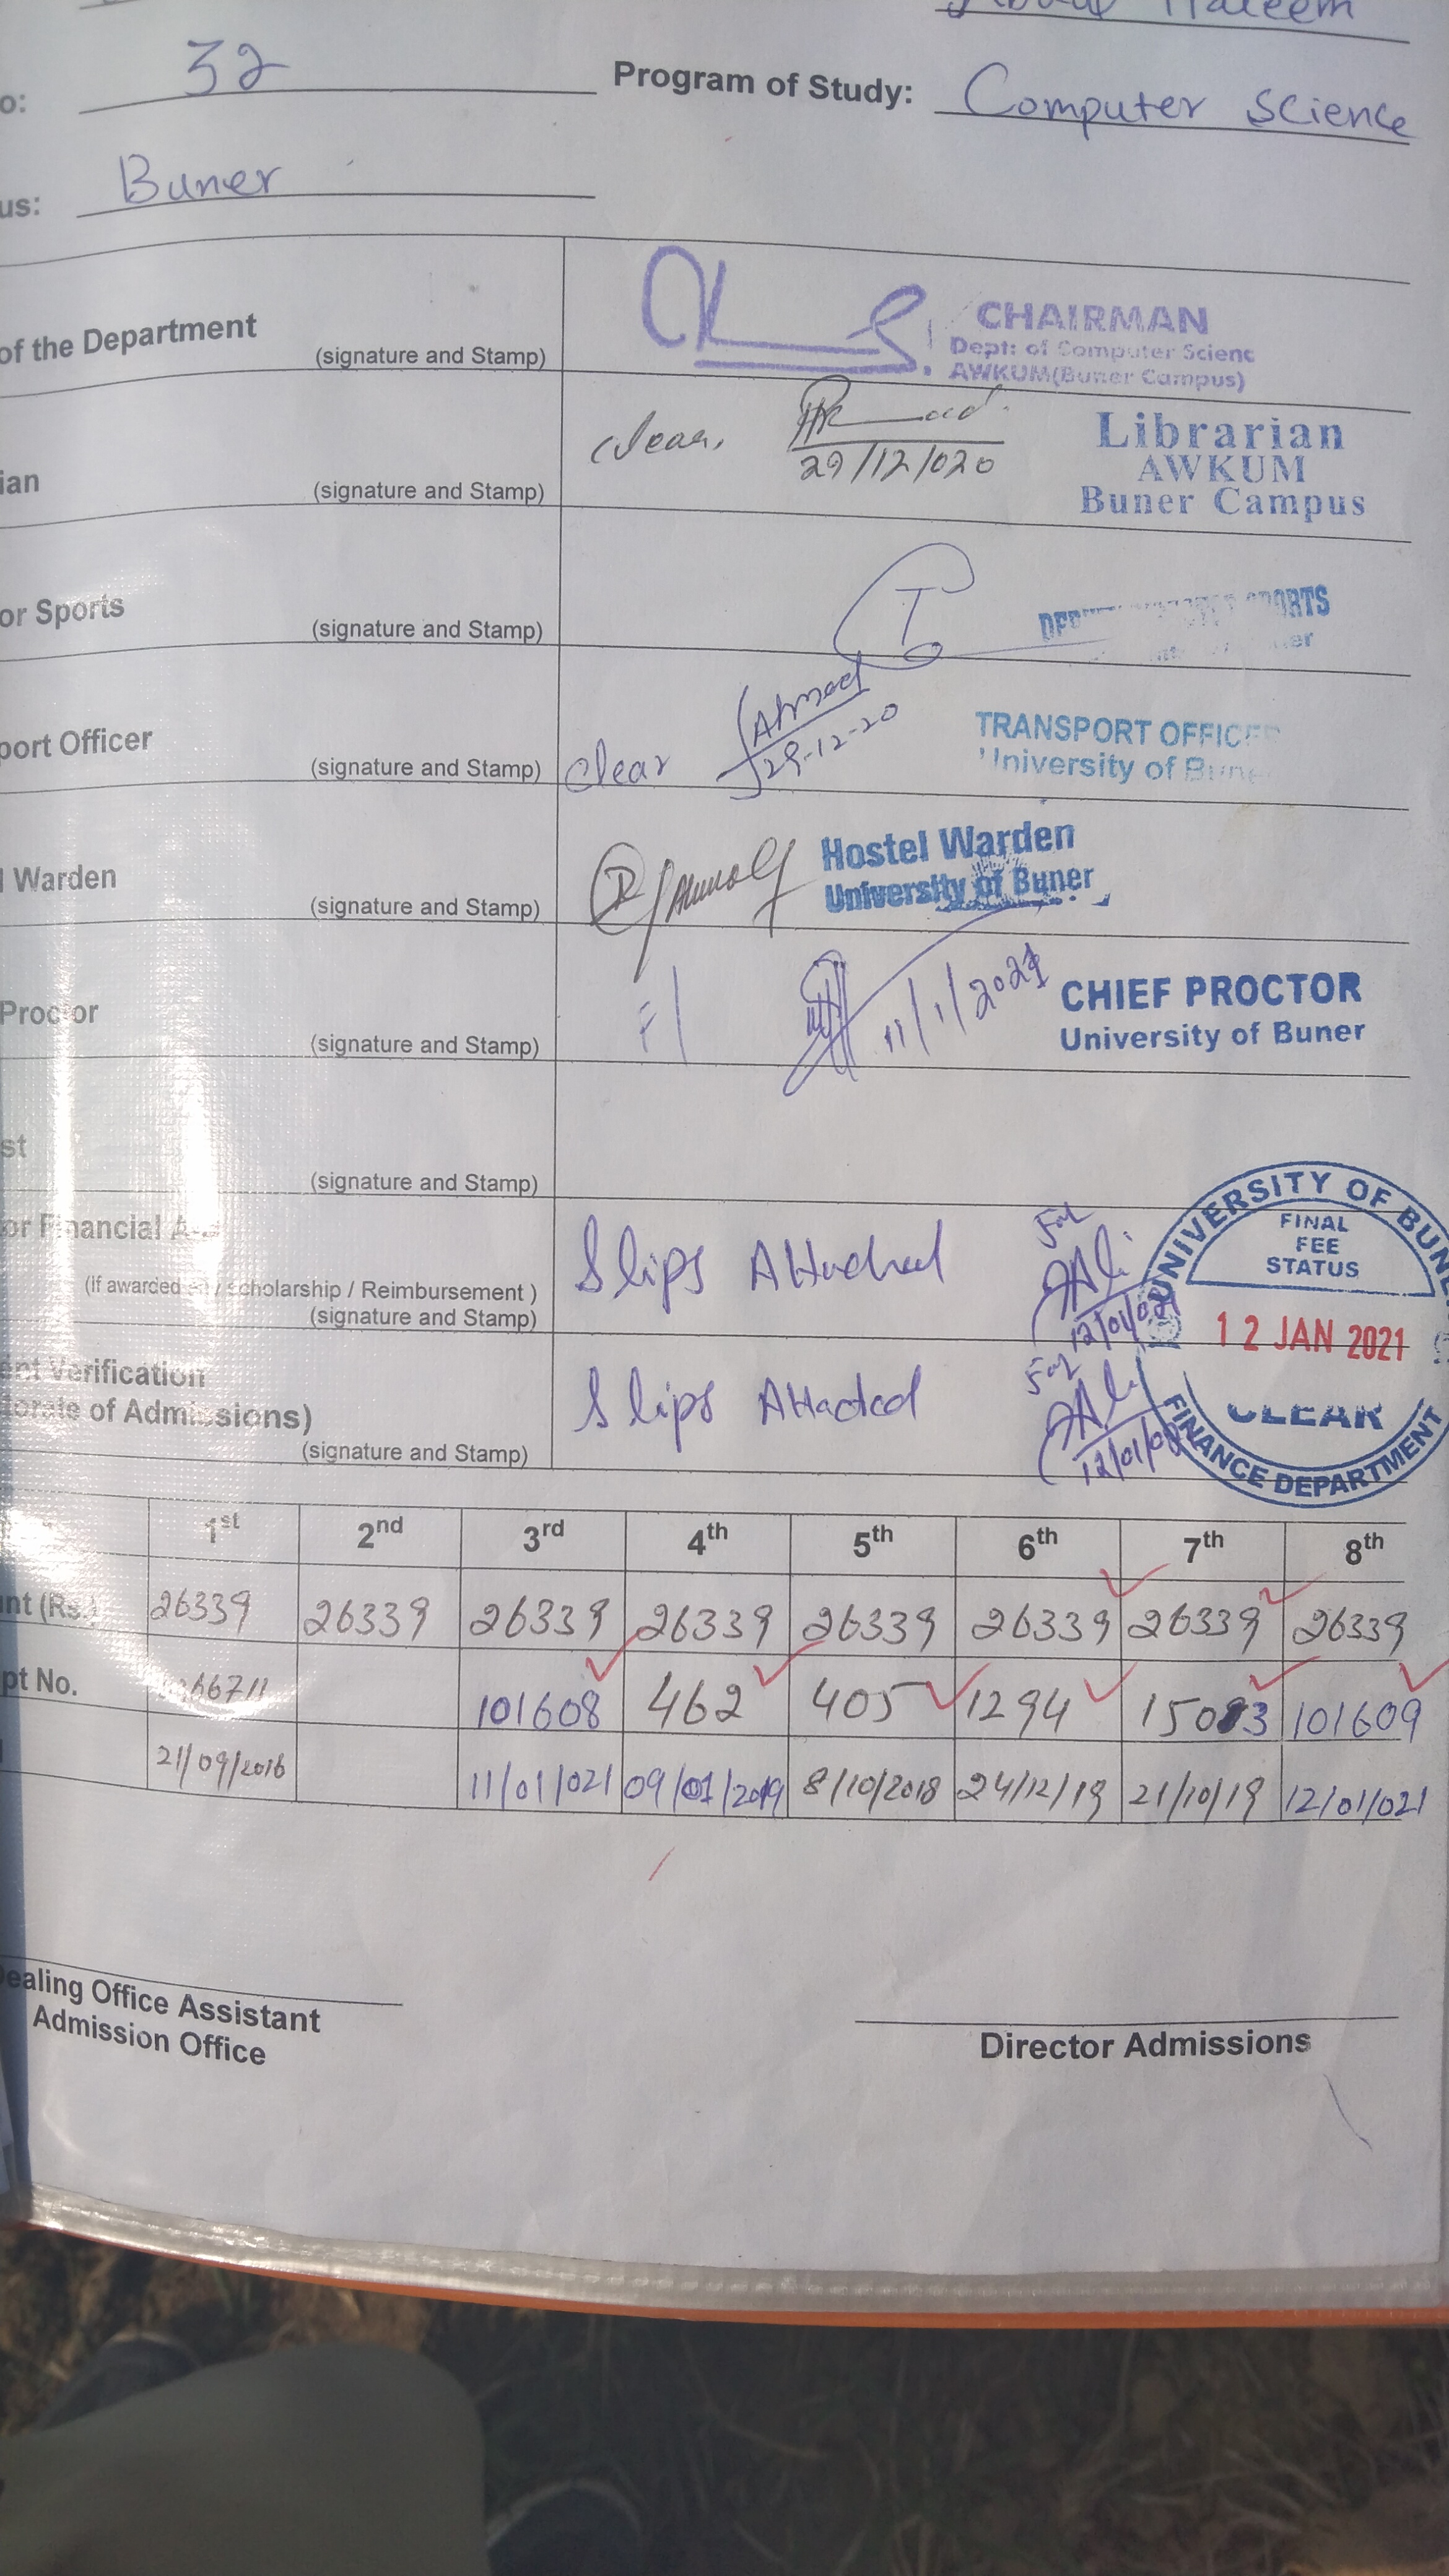 Haleem
o: 32 Program of Study: Computer Science
us: Buner
of the Department (signature and Stamp) CHAIRMAN
Dept: of Computer Scienc
AWKUM(Buner Campus)
ian (signature and Stamp) clear, 29/12/020 Librarian
AWKUM
Buner Campus
or Sports (signature and Stamp) SPORTS
port Officer (signature and Stamp) clear Ahmad 29-12-20 TRANSPORT OFFICE
University of Bune
Warden (signature and Stamp) Hostel Warden
University of Buner
Proctor (signature and Stamp) 11/1/2021 CHIEF PROCTOR
University of Buner
st (signature and Stamp)
or Financial
(If awarded any scholarship / Reimbursement )
(signature and Stamp) Slips Attached For Ali 12/01/021
UNIVERSITY OF BUNE
FINAL
FEE
STATUS
12 JAN 2021
CLEAR
FINANCE DEPARTMENT
ent Verification
torate of Admissions)
(signature and Stamp) Slips Attacted For Ali
1st 2nd 3rd 4th 5th 6th 7th 8th
nt (Rs.) 26339 26339 26339 26339 26339 26339 26339 26339
pt No. 66711 101608 462 405 1294 15083 101609
21/09/2016 11/01/021 09/01/2019 8/10/2018 24/12/19 21/10/19 12/01/021
Dealing Office Assistant
Admission Office
Director Admissions